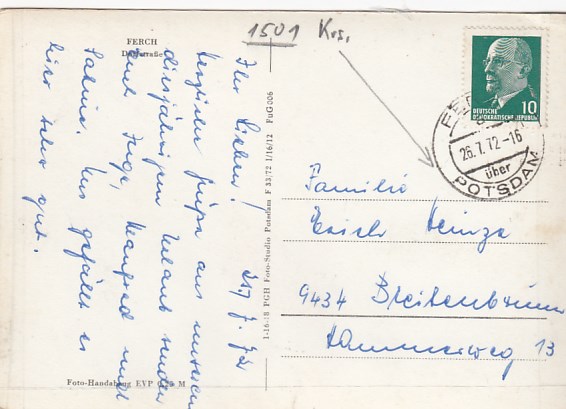 1501 Krs.
FERCH
Dorfstraße
Ihr Lieben!
Herzliche Grüße aus unserem
diesjährigen Urlaub senden
Euch Inge, Manfred und
Sabine. Uns gefällt es
hier sehr gut.
7. 72
1-16-18 PGH Foto-Studio Potsdam F 33/72 I/16/12 FuG 006
Foto-Handabzug EVP 0,25 M
DEUTSCHE
DEMOKRATISCHE REPUBLIK
10
26.7.72-16
über
POTSDAM
Familie
Heinze
9434 Breitenbrunn
Hammerweg 13